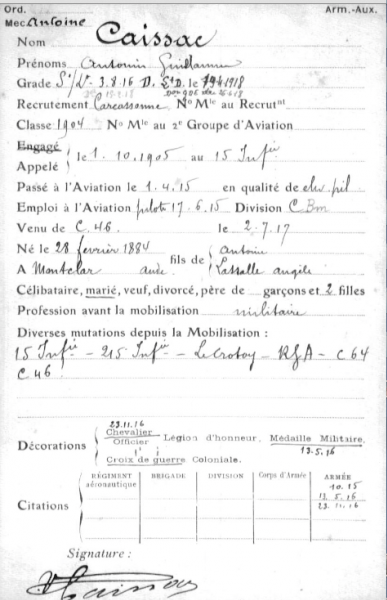 Ord. Arm.-Aux.
Mec Antoine
Nom Caissac
Prénoms Antonin Guillaume
Grade S/Lt 3.8.16 D. Lt D. le 1918
Recrutement Carcassonne N° Mle au Recrutnt
Classe 1904 N° Mle au 2e Groupe d'Aviation
Engagé
Appelé le 1.10.1905 au 15 Infie
Passé à l'Aviation le 1.4.15 en qualité de elv. pil
Emploi à l'Aviation pilote 17.6.15 Division C Bm
Venu de C.46 le 2.7.17
Né le 28 fevrier 1884 fils de Antoine
A Montclar aude Lassalle angèle
Célibataire, marié, veuf, divorcé, père de garçons et 2 filles
Profession avant la mobilisation militaire
Diverses mutations depuis la Mobilisation :
15 Infie - 215 Infie - Le Crotoy - RGA - C 64
C.46.
23.11.16
Décorations Chevalier Officier Légion d'honneur. Médaille Militaire.
13.5.16
Croix de guerre Coloniale.
RÉGIMENT aéronautique BRIGADE DIVISION Corps d'Armée ARMÉE
Citations 10.15
13.5.16
23.11.16
Signature :
Caissac